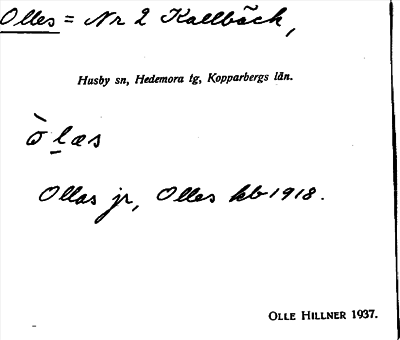 Olles = Nr 2 Kallbäck,
Husby sn, Hedemora tg, Kopparbergs län.
ò̄ l̲æs
Ollas jr, Olles kb 1918.
OLLE HILLNER 1937.